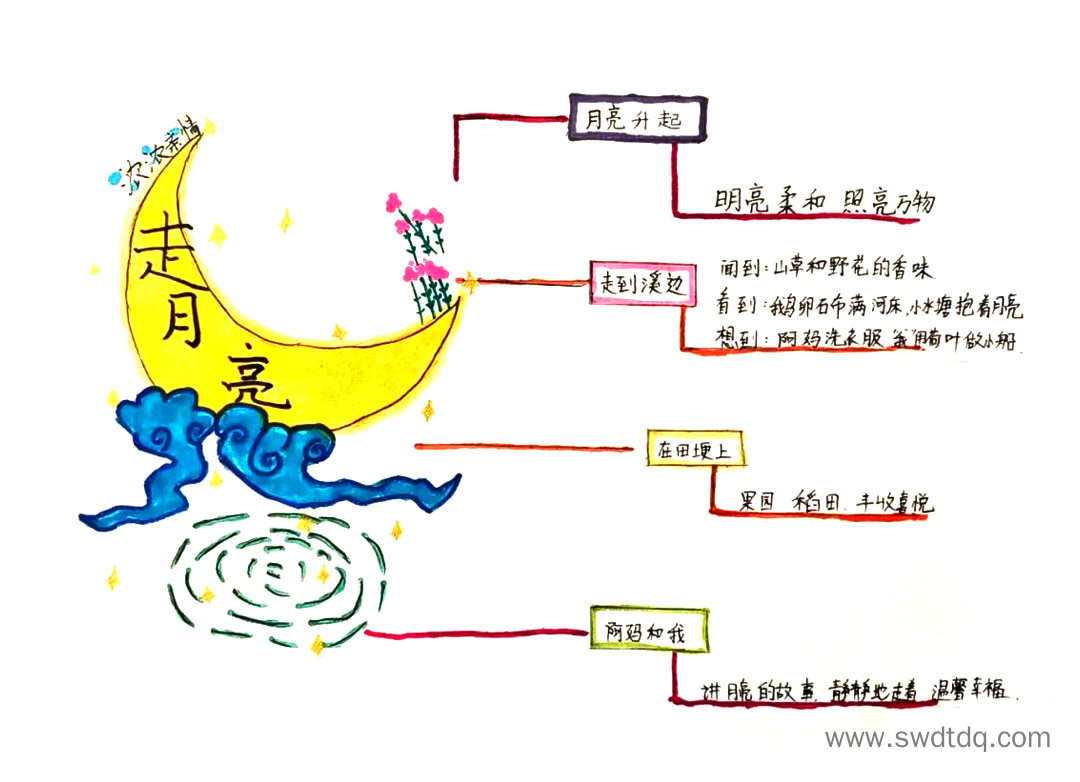 浓浓亲情
走月亮
月亮升起
明亮柔和 照亮万物
走到溪边
闻到:山草和野花的香味
看到:鹅卵石布满河床,小水塘抱着月亮
想到:阿妈洗衣服 我用荷叶做小船.
在田埂上
果园 稻田. 丰收喜悦
阿妈和我
讲月亮的故事. 静静地走着 温馨幸福.
www.swdtdq.com